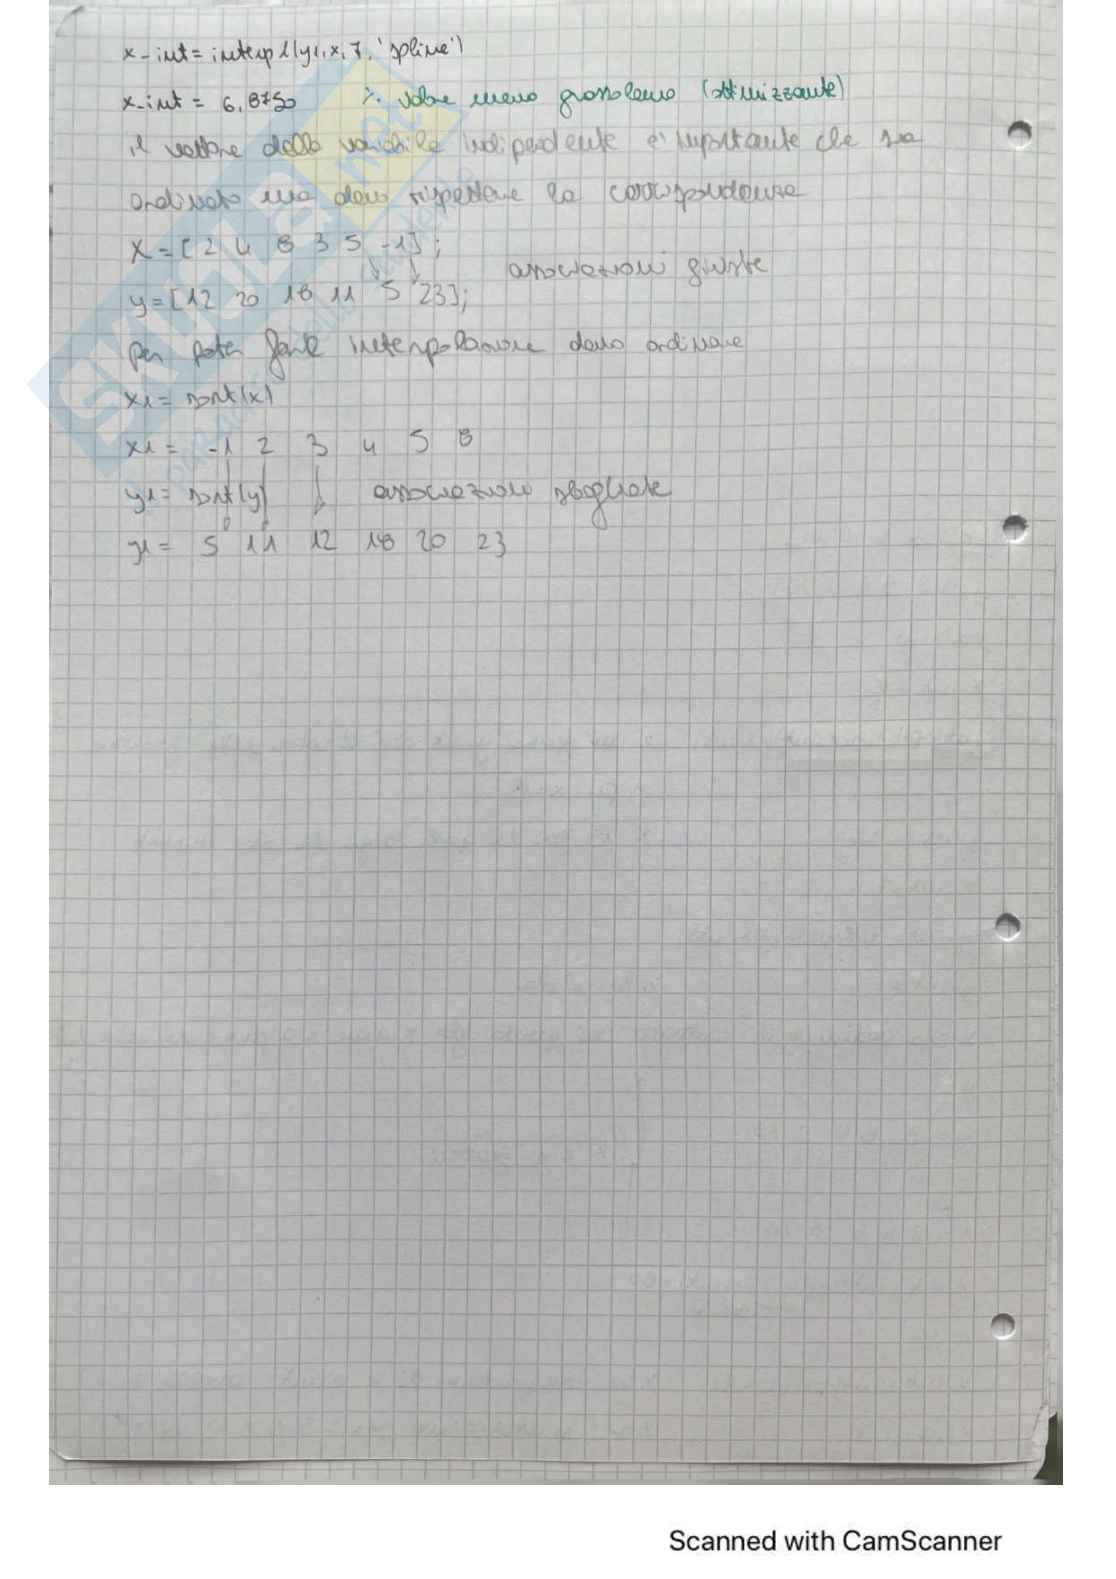 x_int = interp1(y1, x, 7, 'spline')
x_int = 6,8750 % valore meno grossolano (ottimizzante)
il vettore della variabile indipendente è importante che sia
ordinato ma devo rispettare la corrispondenza
x = [2 4 8 3 5 -1];
associazioni giuste
y = [12 20 18 11 5 23];
per poter fare interpolazione devo ordinare
x1 = sort(x)
x1 = -1 2 3 4 5 8
y1 = sort(y) associazioni sbagliate
y1 = 5 11 12 18 20 23
SKUOLA.net
Scanned with CamScanner